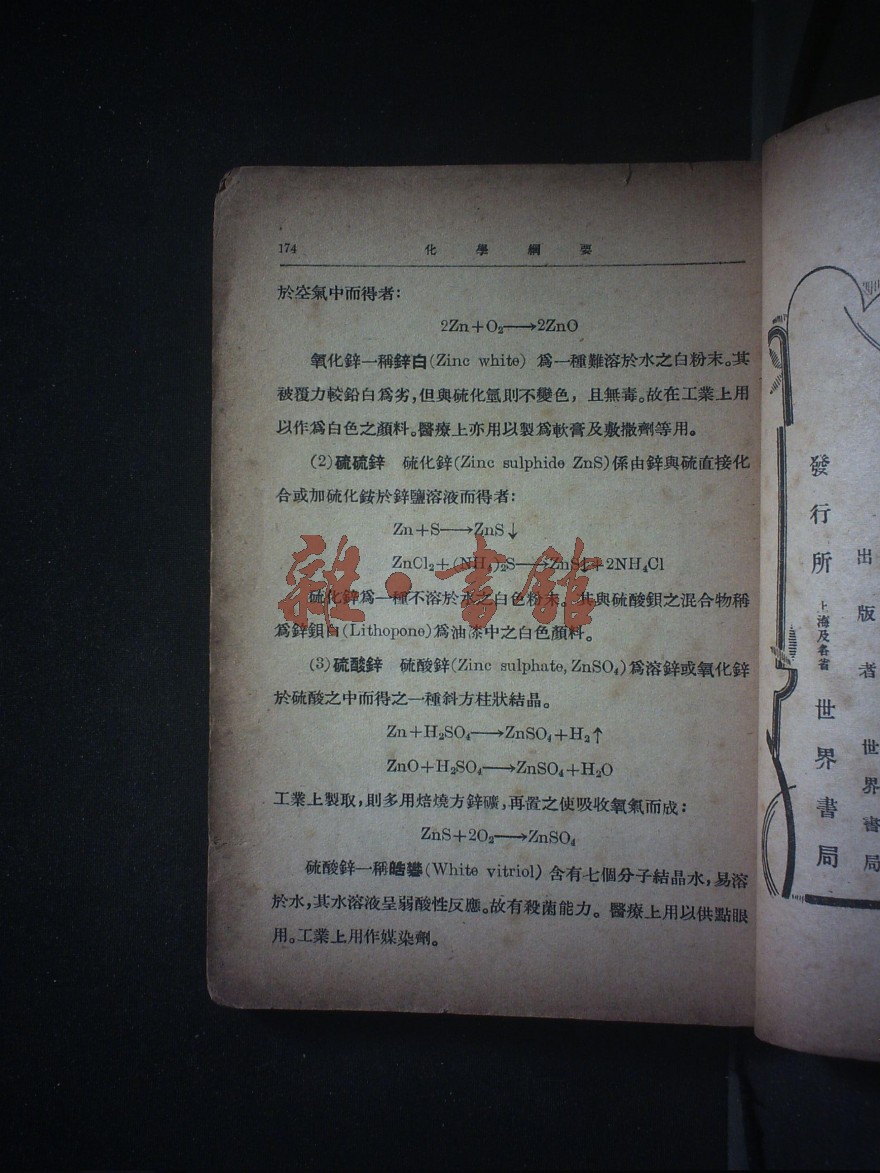 174 化學綱要
於空氣中而得者:
2Zn+O₂⟶2ZnO
氧化鋅一稱鋅白(Zinc white) 爲一種難溶於水之白粉末。其
被覆力較鉛白爲劣,但與硫化氫則不變色，且無毒。故在工業上用
以作爲白色之顏料。醫療上亦用以製爲軟膏及敷撒劑等用。
(2)硫硫鋅 硫化鋅(Zinc sulphide ZnS)係由鋅與硫直接化
合或加硫化銨於鋅鹽溶液而得者:
Zn+S⟶ZnS↓
ZnCl₂+(NH₄)₂S⟶ZnS↓+2NH₄Cl
硫化鋅爲一種不溶於水之白色粉末。其與硫酸鋇之混合物稱
爲鋅鋇白(Lithopone)爲油漆中之白色顏料。
(3)硫酸鋅 硫酸鋅(Zinc sulphate, ZnSO₄)爲溶鋅或氧化鋅
於硫酸之中而得之一種斜方柱狀結晶。
Zn+H₂SO₄⟶ZnSO₄+H₂↑
ZnO+H₂SO₄⟶ZnSO₄+H₂O
工業上製取,則多用焙燒方鋅礦,再置之使吸收氧氣而成:
ZnS+2O₂⟶ZnSO₄
硫酸鋅一稱皓礬(White vitriol) 含有七個分子結晶水,易溶
於水,其水溶液呈弱酸性反應。故有殺菌能力。醫療上用以供點眼
用。工業上用作媒染劑。
雜·書館
出版者 世界書局
發行所 上海及各省 世界書局